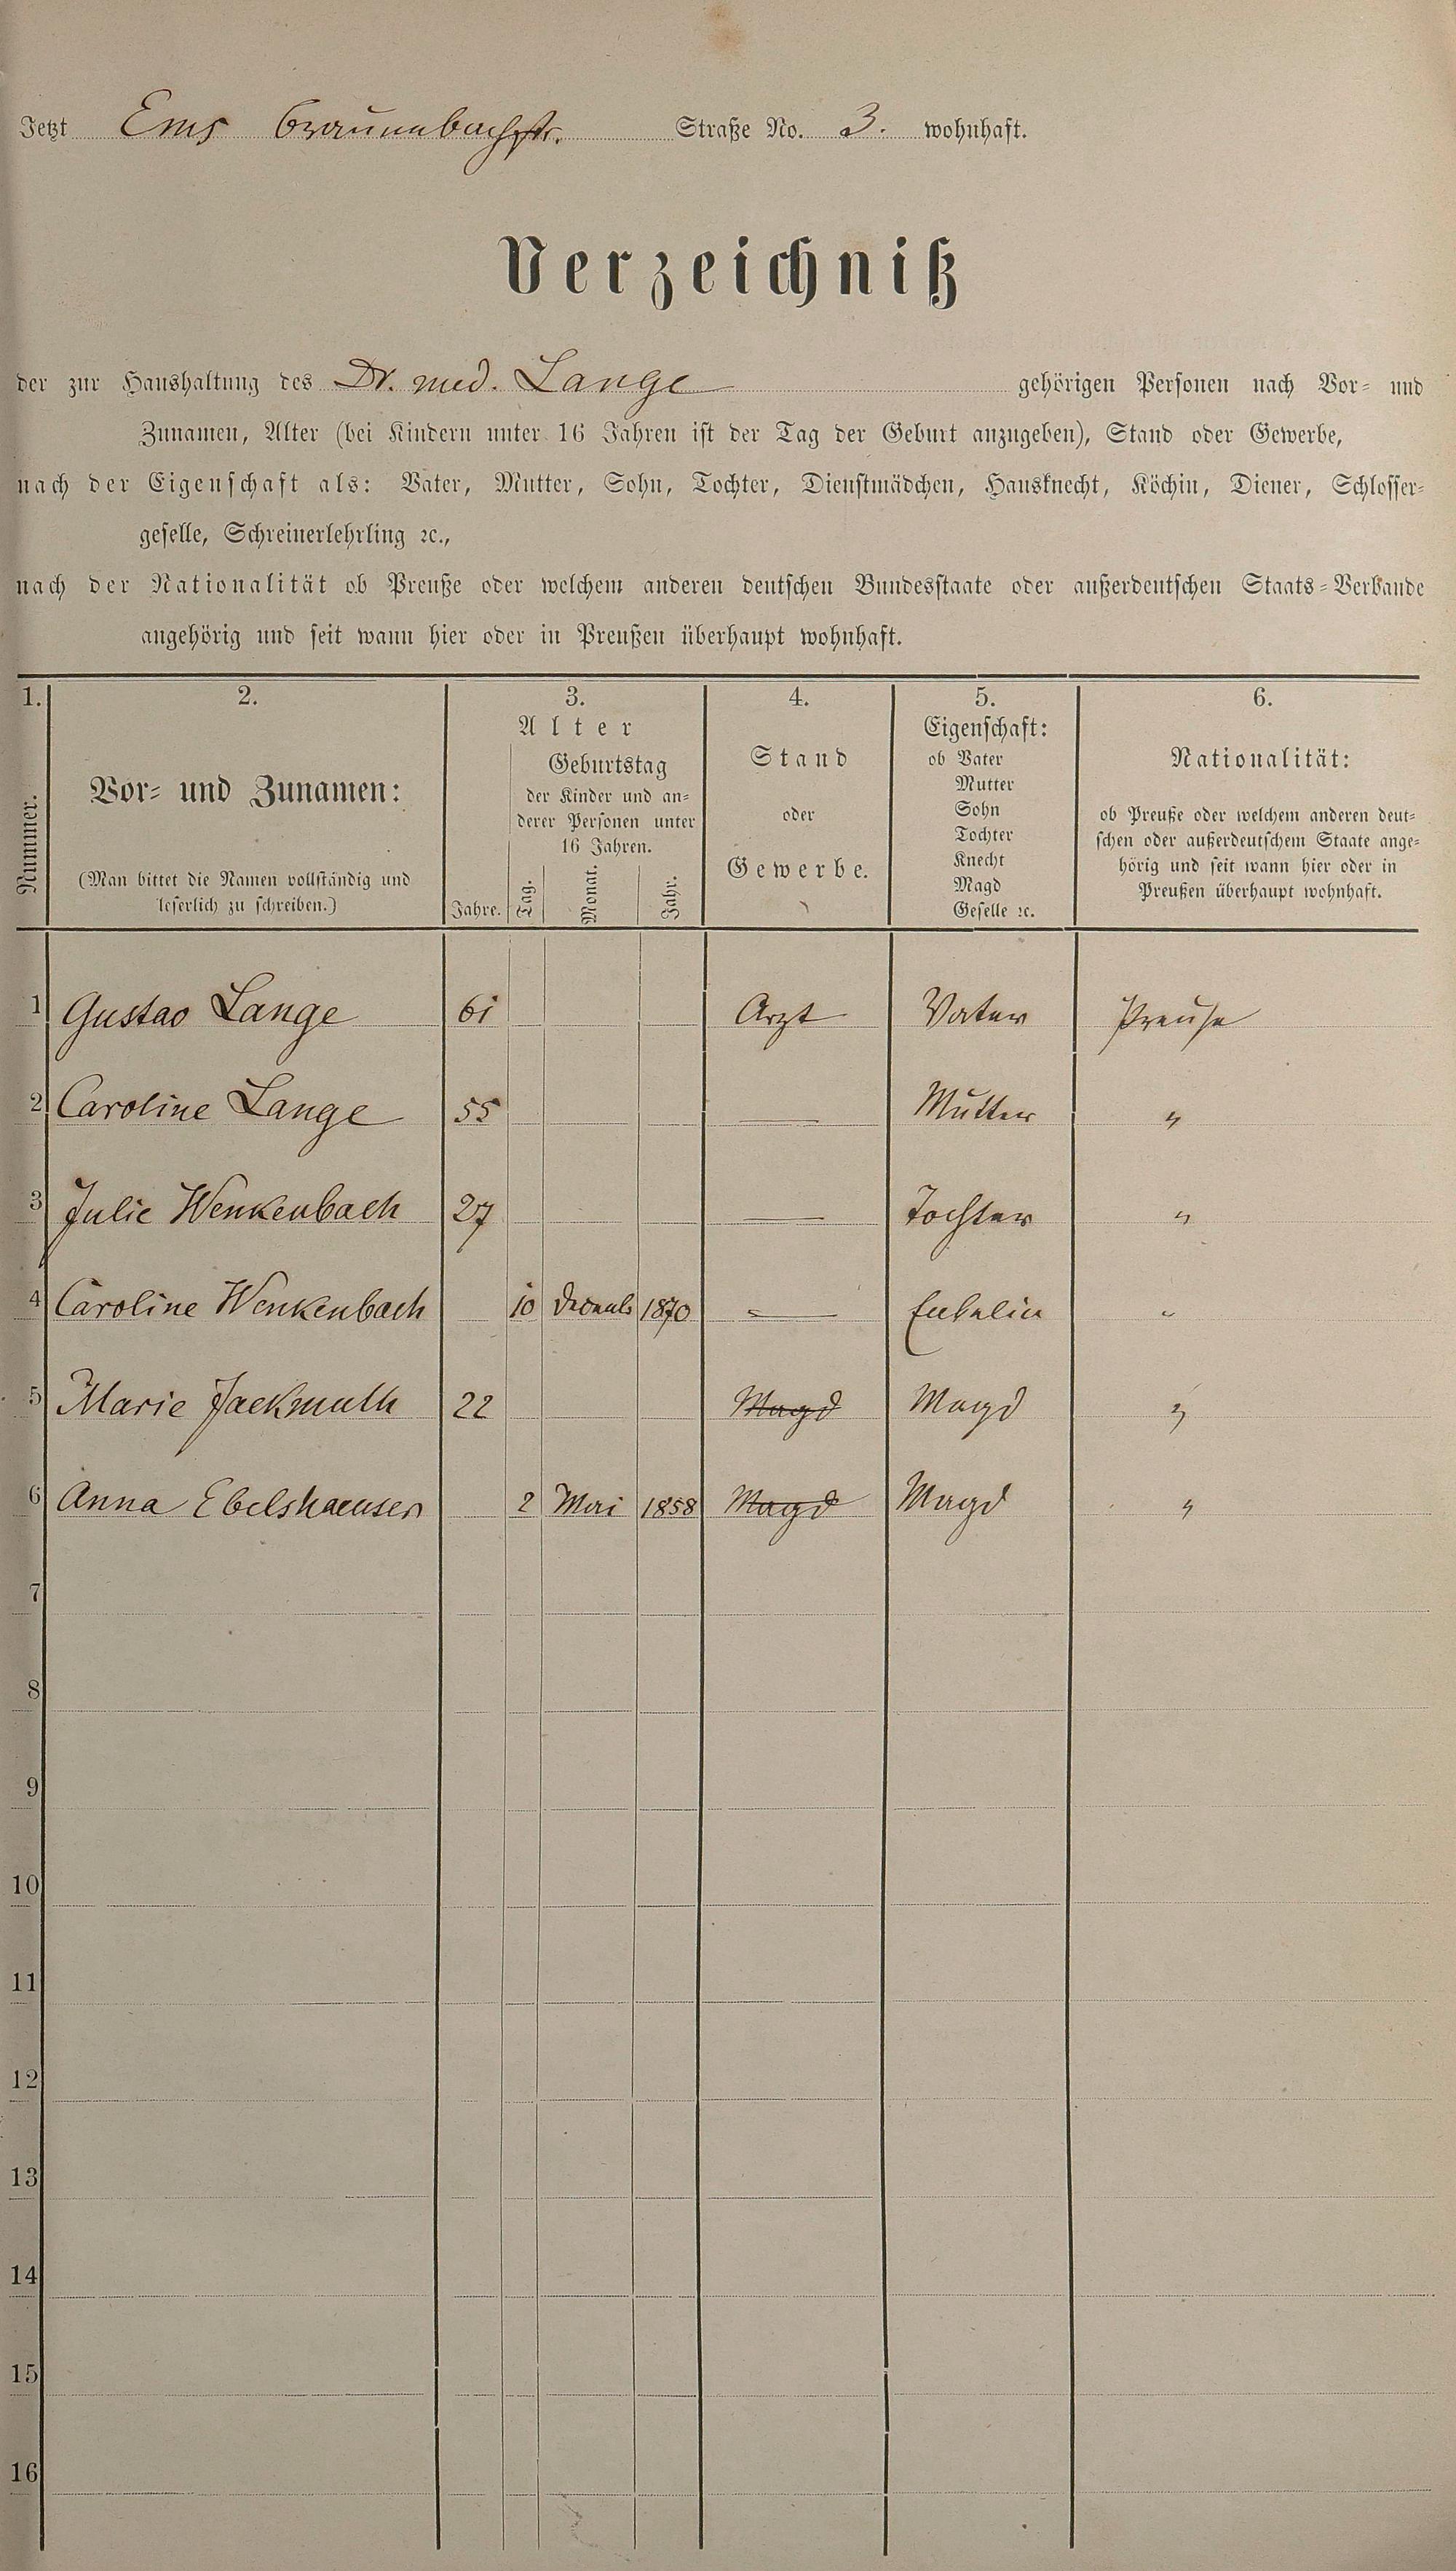 Jetzt Ems Braunebachstr. Straße No. 3. wohnhaft.
Verzeichniß
der zur Haushaltung des Dr. med. Lange gehörigen Personen nach Vor- und
Zunamen, Alter (bei Kindern unter 16 Jahren ist der Tag der Geburt anzugeben), Stand oder Gewerbe,
nach der Eigenschaft als: Vater, Mutter, Sohn, Tochter, Dienstmädchen, Hausknecht, Köchin, Diener, Schlosser-
geselle, Schreinerlehrling ꝛc.,
nach der Nationalität ob Preuße oder welchem anderen deutschen Bundesstaate oder außerdeutschen Staats-Verbande
angehörig und seit wann hier oder in Preußen überhaupt wohnhaft.
1. 2. 3. 4. 5. 6.
Nummer.
Vor- und Zunamen:
(Man bittet die Namen vollständig und
leserlich zu schreiben.)
Alter
Jahre.
Geburtstag
der Kinder und an-
derer Personen unter
16 Jahren.
Tag. Monat. Jahr.
Stand
oder
Gewerbe.
Eigenschaft:
ob Vater
Mutter
Sohn
Tochter
Knecht
Magd
Geselle ꝛc.
Nationalität:
ob Preuße oder welchem anderen deut-
schen oder außerdeutschem Staate ange-
hörig und seit wann hier oder in
Preußen überhaupt wohnhaft.
1 Gustav Lange 61 Arzt Vater Preuße
2 Caroline Lange 55 — Mutter "
3 Julie Wenkenbach 27 — Tochter "
4 Caroline Wenkenbach 10 Decemb 1870 — Enkelin "
5 Marie Jackmuth 22 Magd Magd "
6 Anna Ebelshaeuser 2 Mai 1858 Magd Magd "
7
8
9
10
11
12
13
14
15
16